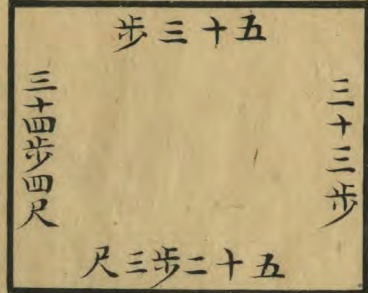 五十三步
三十三步
三十四步四尺
五十二步三尺